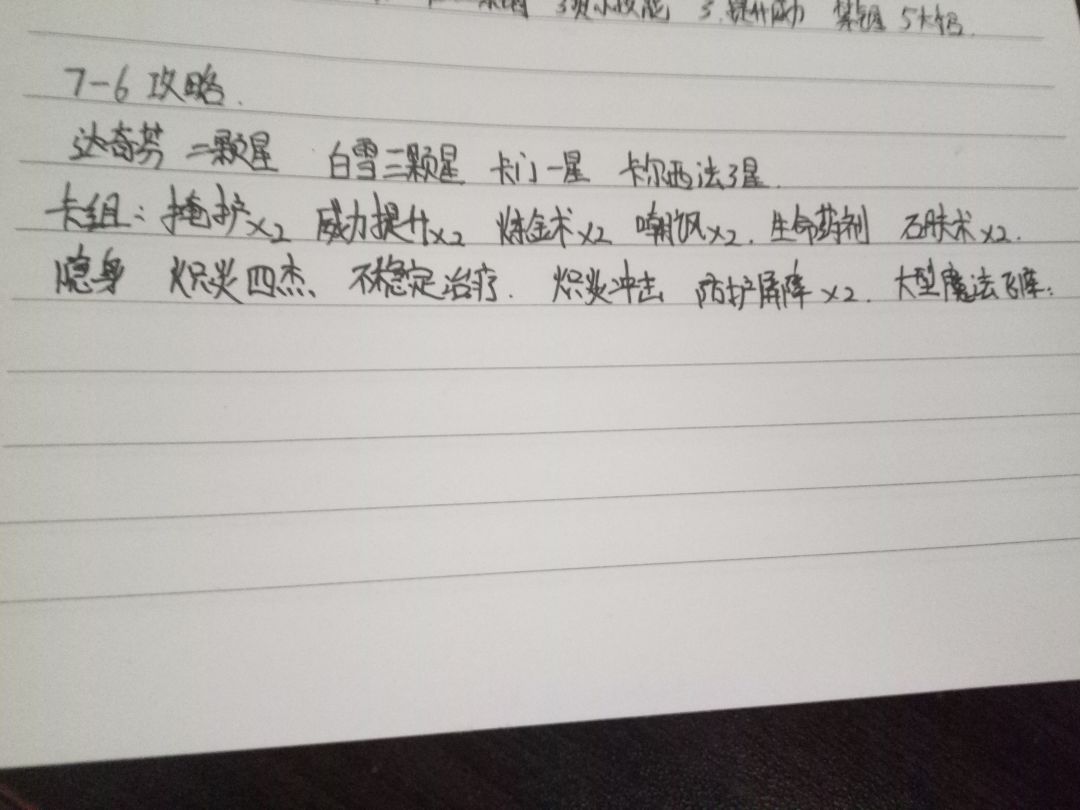 3.提升威力
7-6 攻略.
达奇芬 二颗星 白雪三颗星 卡门一星 卡尔西法3星.
卡组：掩护x2 威力提升x2 炼金术x2 嘲讽x2. 生命药剂 石肤术x2.
隐身 炽炎四杰、不稳定治疗. 炽炎冲击 防护屏障x2. 大型魔法飞库;